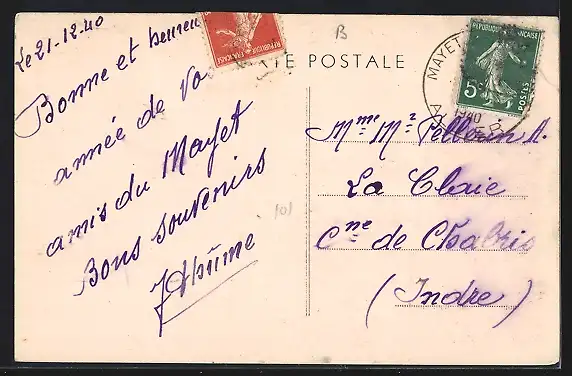 Le 21-12-40
Bonne et heureu
année de vo
amis du Mayet
Bons souvenirs
CARTE POSTALE
B
101
REPUBLIQUE FRANÇAISE
5c
POSTES
MAYET
1940
Mme Mr Pelloin A.
La Claie
Cne de Chabris
(Indre)